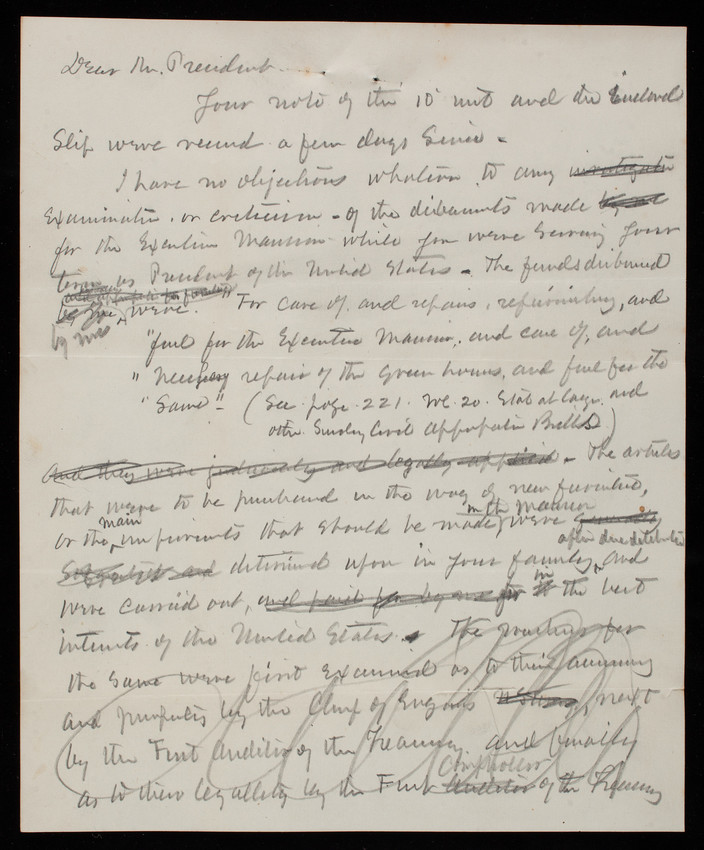 Dear Mr. President
Your note of the 10' inst and the Enclosed
Slip were received a few days since -
I have no objections whatever to any investigation
Examination or criticism - of the disbursmts made
for the Executive Mansion while you were serving your
term as President of the United States - The funds disbursed
by me were. "For care of, and repairs, refurnishing, and
by me
"fuel for the Executive Mansion, and care of, and
" Necessary repair of the green houses, and fuel for the
"Same" - (See page 221. vol. 20. Stat at Large and
other Sundry Civil appropriatn Bills)
And they were judiciously and legally applied - The articles
that were to be purchased in the way of new furniture,
in the Mansion
main
or the improvments that should be made, were
after due deliberation
and determined upon in your family, and
were carried out, and paid for by me for in the best
interests of the United States. The vouchers for
the same were first Examined as to their accuracy
and propriety by the Chief of Engrs next
by the First Auditor of the Treasury and finally
Comptroller
as to their legality by the First Auditor of the Treasury